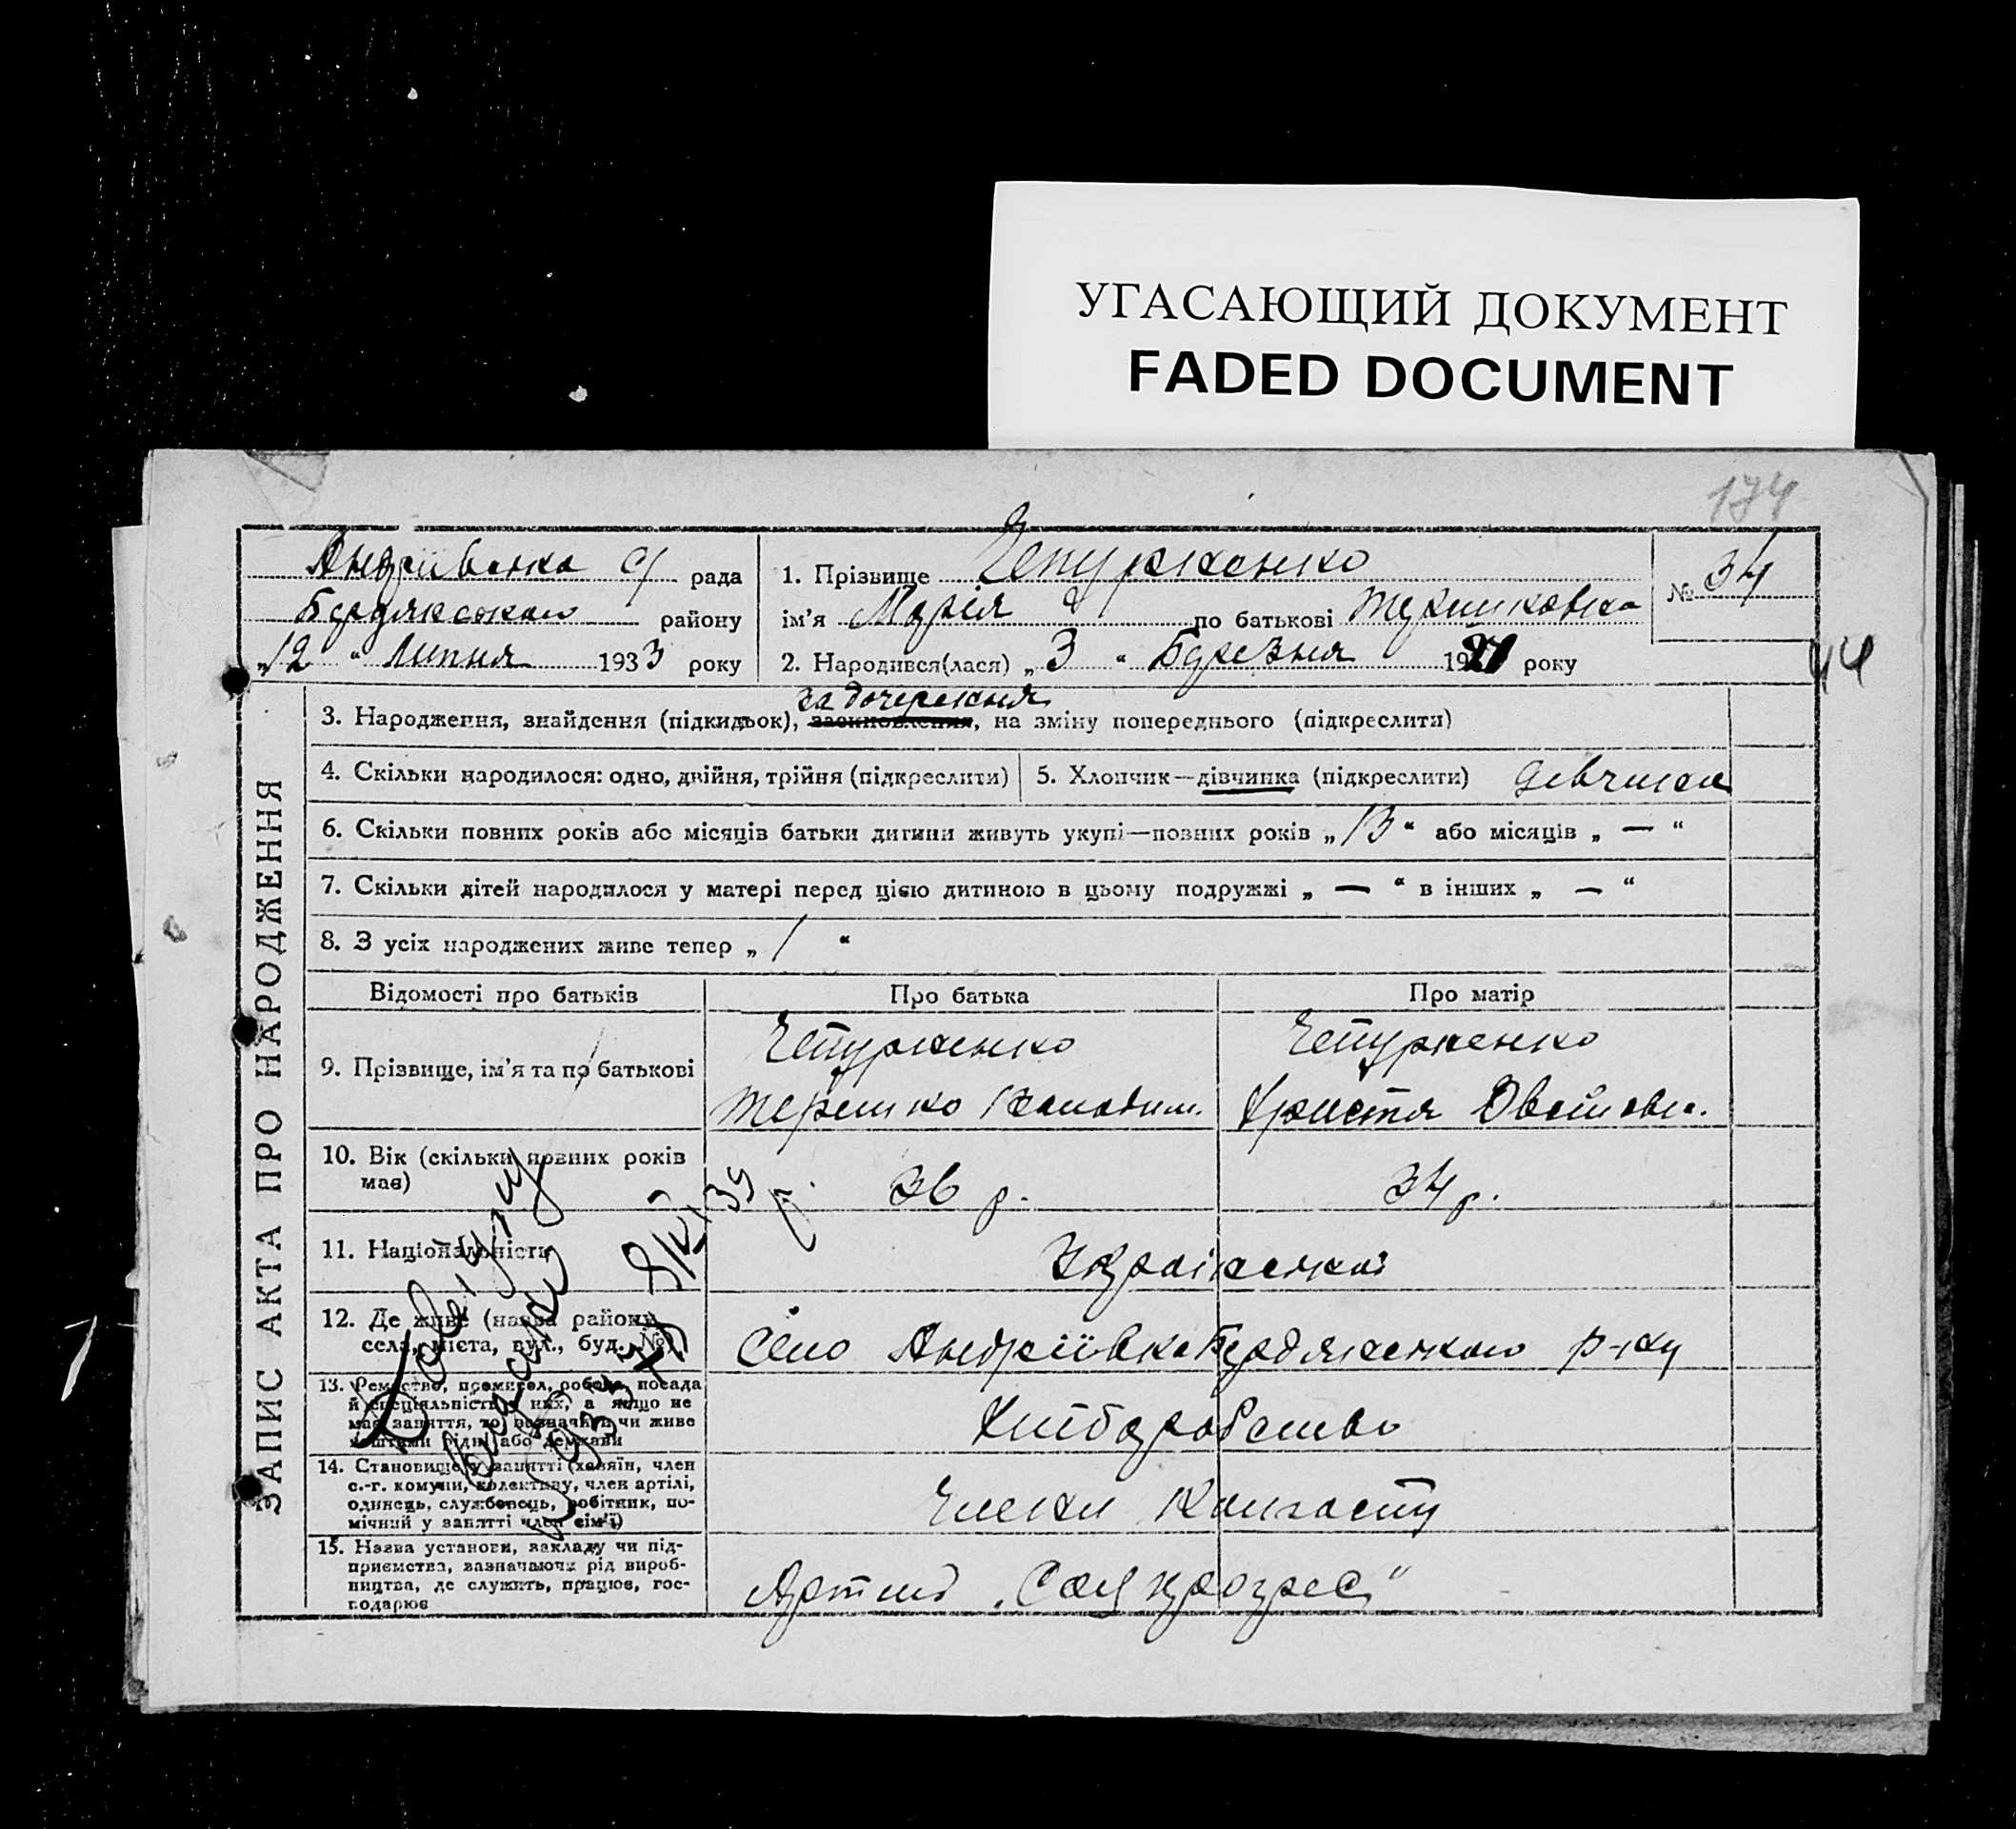 УГАСАЮЩИЙ ДОКУМЕНТ
FADED DOCUMENT
174
Андріївська с/ рада
Бердянського району
„12“ Липня 1933 року
1. Прізвище Чепурненко
ім'я Марія по батькові Терешковна
2. Народився(лася) „3“ Березня 19 року
№ 34
44
ЗАПИС АКТА ПРО НАРОДЖЕННЯ
задочерення
3. Народження, знайдення (підкидьок), засиновлення, на зміну попереднього (підкреслити)
4. Скільки народилося: одно, двійня, трійня (підкреслити)
5. Хлопчик—дівчинка (підкреслити) дівчина
6. Скільки повних років або місяців батьки дитини живуть укупі—повних років „13“ або місяців „—“
7. Скільки дітей народилося у матері перед цією дитиною в цьому подружжі „—“ в інших „—“
8. З усіх народжених живе тепер „1“
Відомості про батьків
Про батька
Про матір
9. Прізвище, ім'я та по батькові
Чепурненко
Терешко
Чепурненко
Христя
10. Вік (скільки повних років має)
36 р.
34 р.
11. Національність
Українські
12. Де живе (назва району, села, міста, вул., буд. №)
Село Андріївка Бердянського р-ну
13. Ремество, промисел, робота, посада
й спеціяльність у них, а якщо не
має заняття, то зазначити чи живе
коштами рідні або держави
Хліборобство
14. Становище у занятті (хазяїн, член
с.-г. комуни, колективу, член артілі,
одинець, службовець, робітник, по-
мічний у занятті член сім'ї)
Члени колгоспу
15. Назва установи, закладу чи під-
приємства, зазначаючи рід вироб-
ництва, де служить, працює, гос-
подарює
Артиль „Соц прогрес“